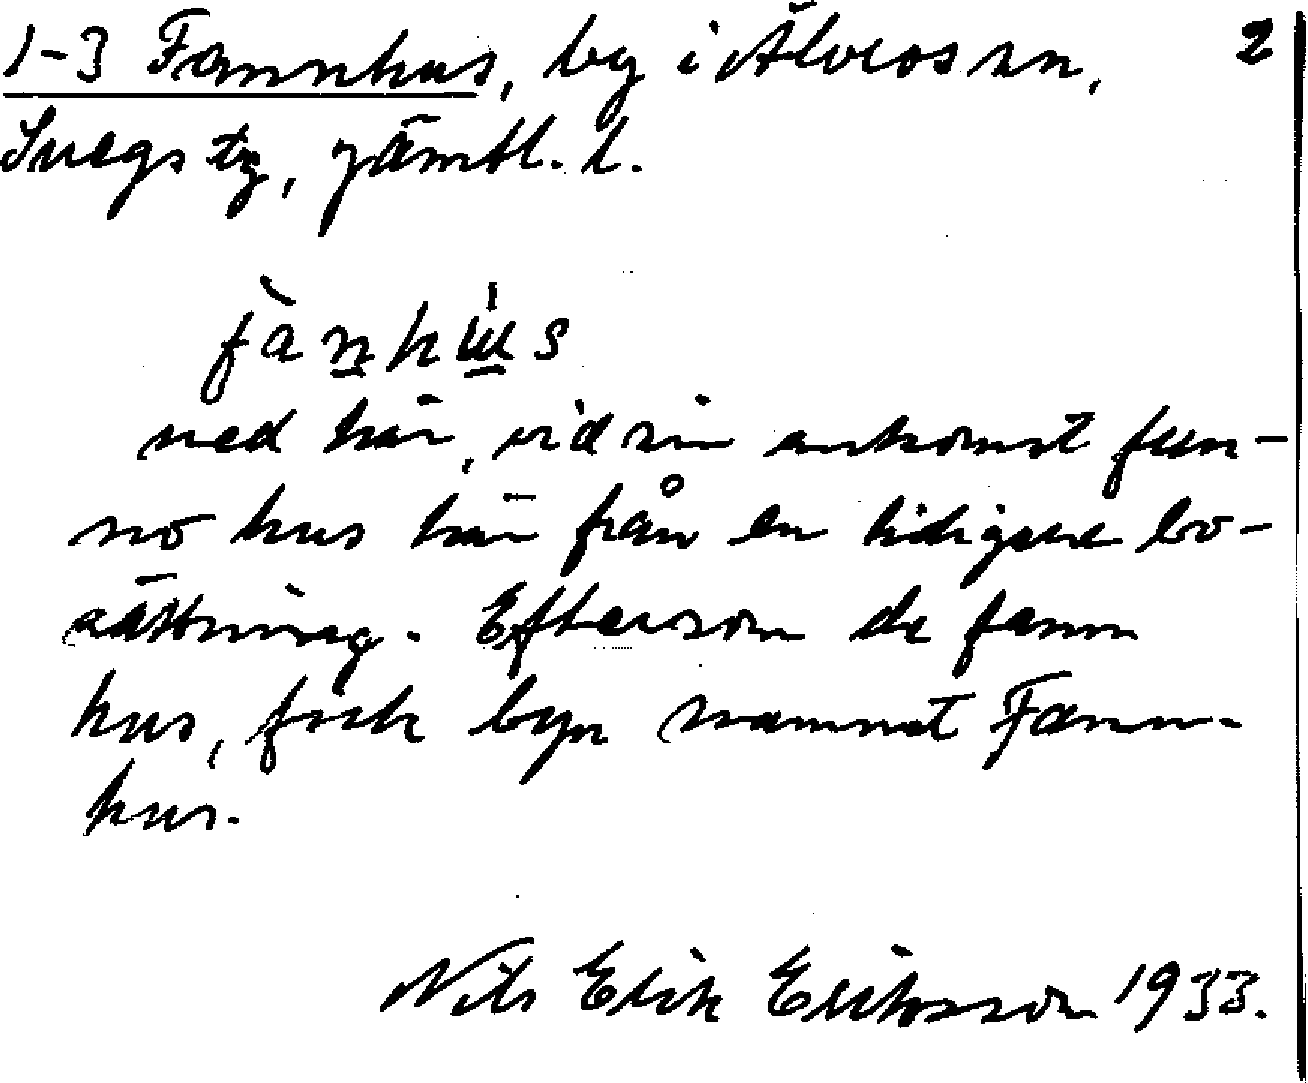 1-3 Fannhus, by i Älvros sn, 2
Svegs tg, Jämtl. l.
fànhus
ned här, vid sin ankomst fun-
no hus här från en tidigare bo-
sättning. Eftersom de fann
hus, fick byn namnet Fann-
hus.
Nils Erik Eriksson 1933.